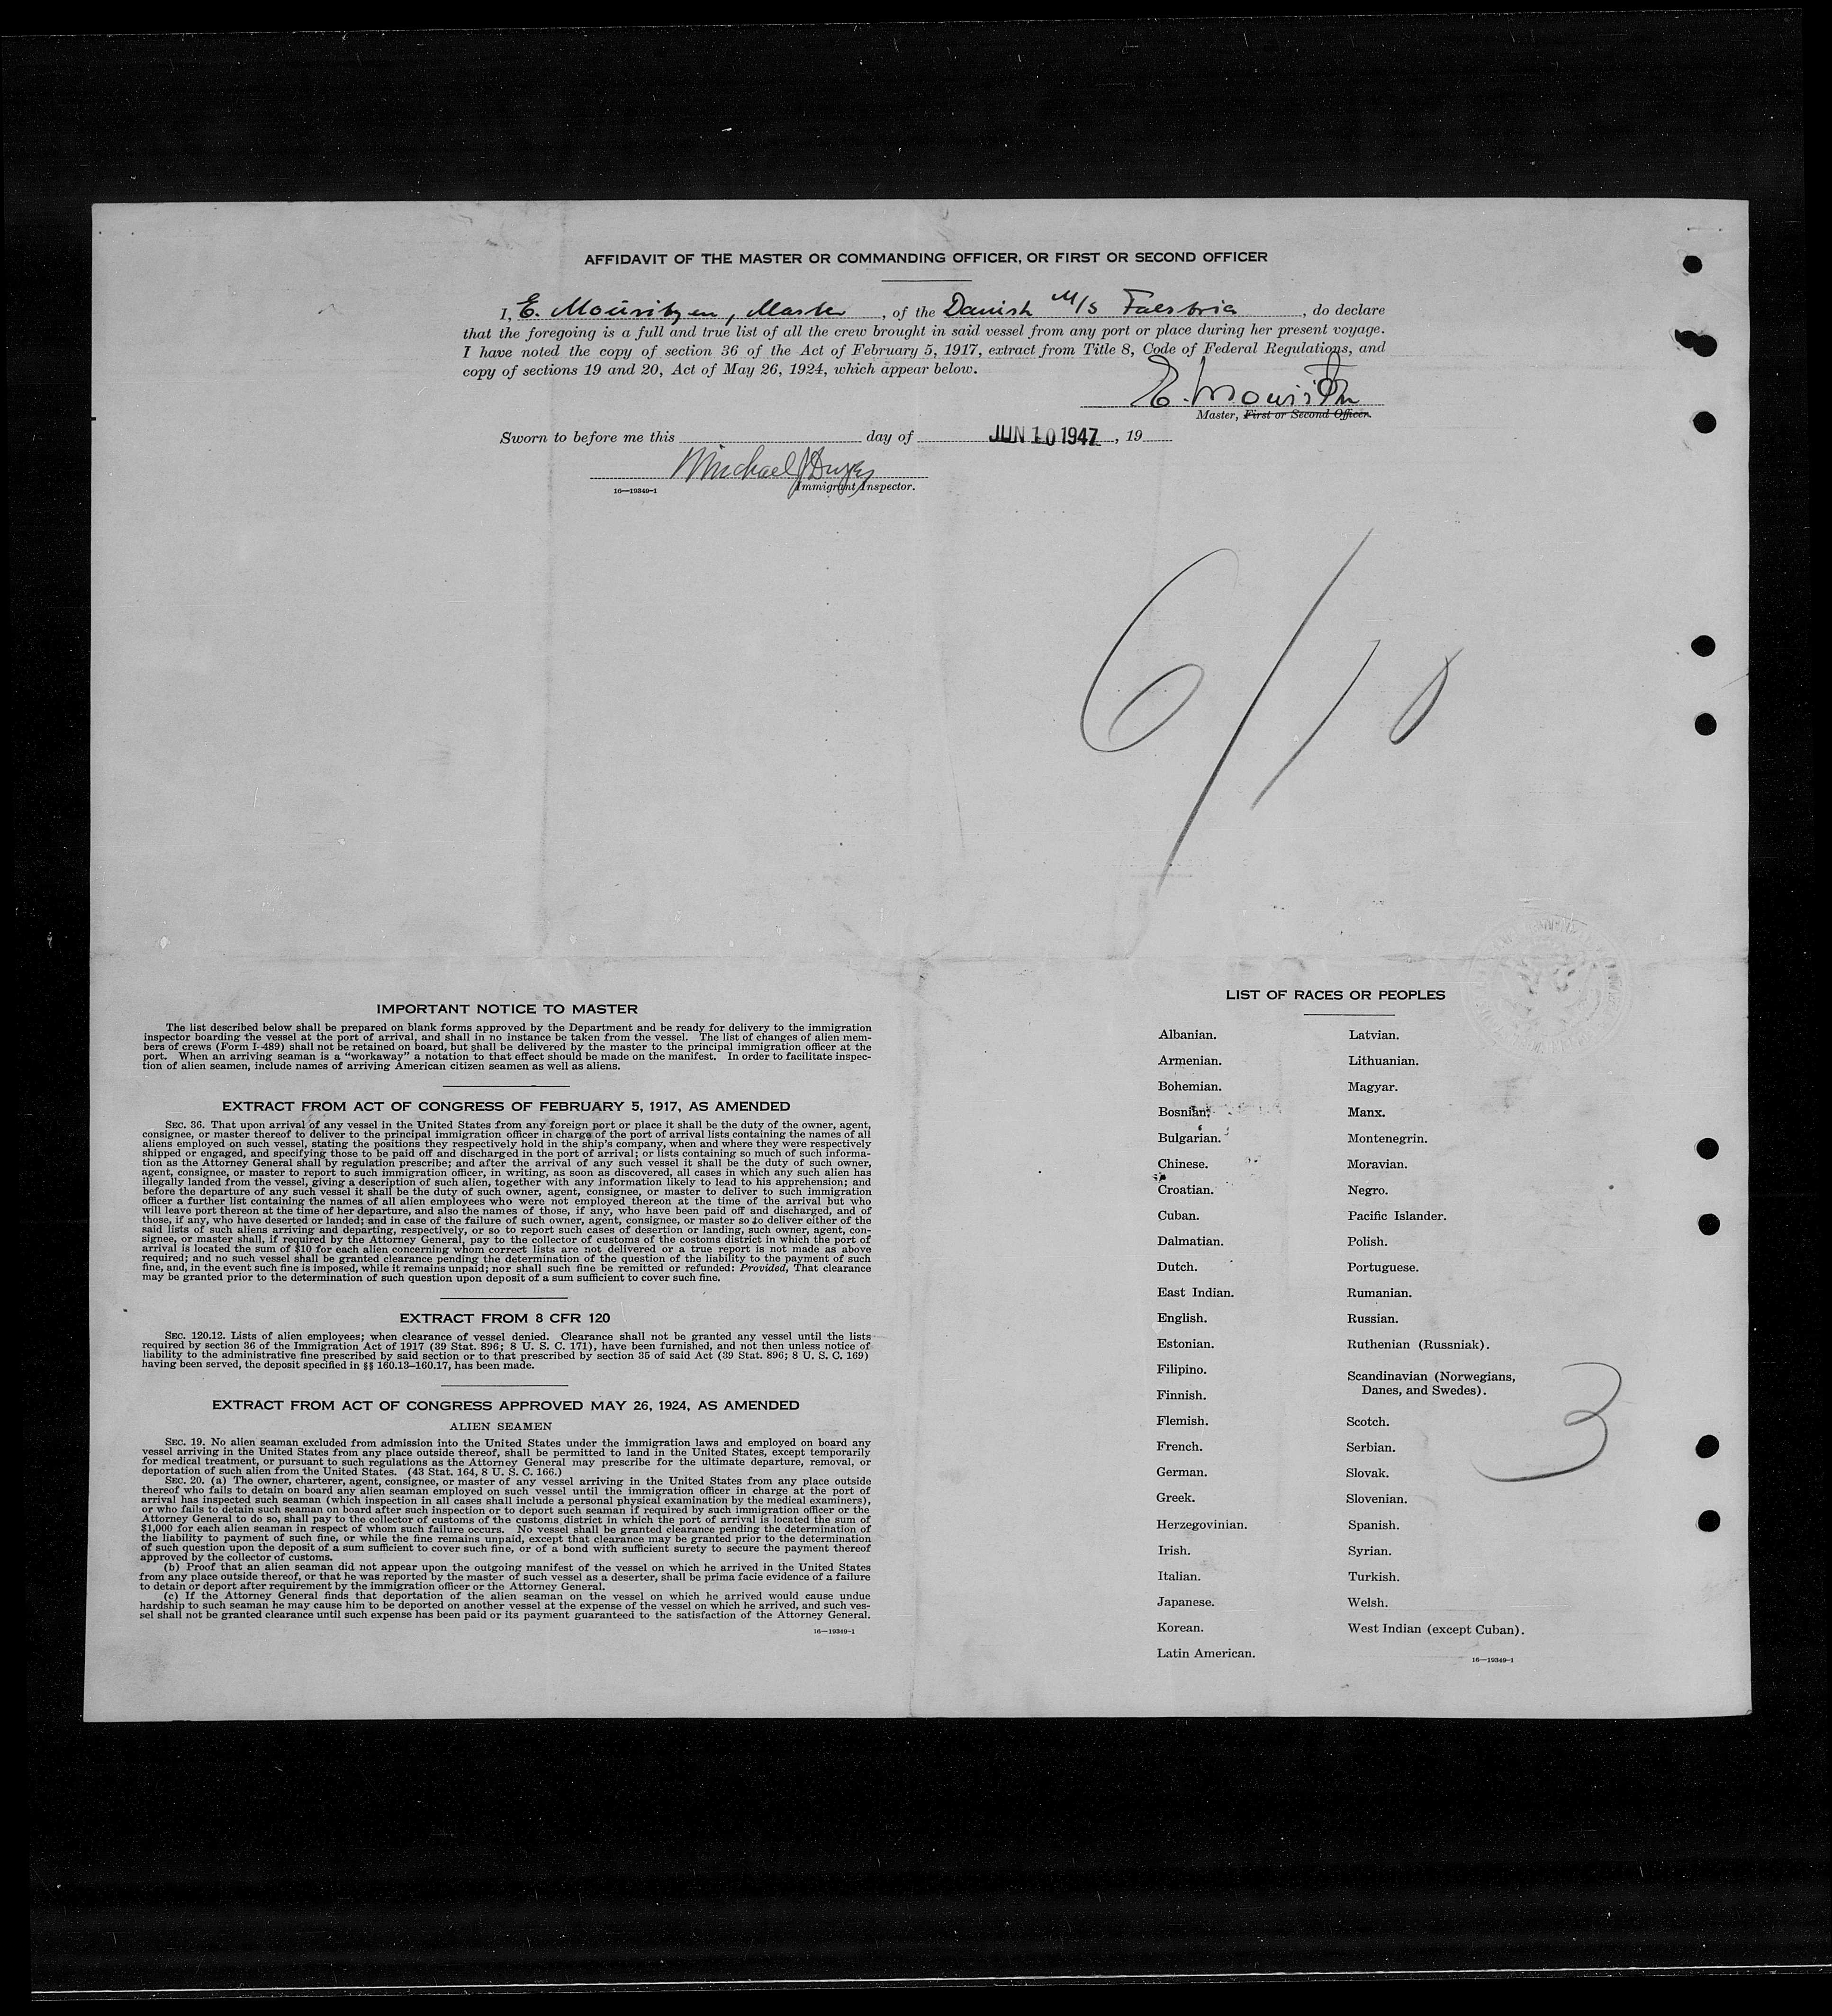 AFFIDAVIT OF THE MASTER OR COMMANDING OFFICER, OR FIRST OR SECOND OFFICER
I, E. Mouritzen, Master, of the Danish M/S Falstria, do declare
that the foregoing is a full and true list of all the crew brought in said vessel from any port or place during her present voyage.
I have noted the copy of section 36 of the Act of February 5, 1917, extract from Title 8, Code of Federal Regulations, and
copy of sections 19 and 20, Act of May 26, 1924, which appear below.
Master, First or Second Officer.
Sworn to before me this day of JUN 10 1947, 19
Michael
16—19349-1 Immigrant Inspector.
6/10
IMPORTANT NOTICE TO MASTER
The list described below shall be prepared on blank forms approved by the Department and be ready for delivery to the immigration
inspector boarding the vessel at the port of arrival, and shall in no instance be taken from the vessel. The list of changes of alien mem-
bers of crews (Form I-489) shall not be retained on board, but shall be delivered by the master to the principal immigration officer at the
port. When an arriving seaman is a “workaway” a notation to that effect should be made on the manifest. In order to facilitate inspec-
tion of alien seamen, include names of arriving American citizen seamen as well as aliens.
EXTRACT FROM ACT OF CONGRESS OF FEBRUARY 5, 1917, AS AMENDED
SEC. 36. That upon arrival of any vessel in the United States from any foreign port or place it shall be the duty of the owner, agent,
consignee, or master thereof to deliver to the principal immigration officer in charge of the port of arrival lists containing the names of all
aliens employed on such vessel, stating the positions they respectively hold in the ship's company, when and where they were respectively
shipped or engaged, and specifying those to be paid off and discharged in the port of arrival; or lists containing so much of such informa-
tion as the Attorney General shall by regulation prescribe; and after the arrival of any such vessel it shall be the duty of such owner,
agent, consignee, or master to report to such immigration officer, in writing, as soon as discovered, all cases in which any such alien has
illegally landed from the vessel, giving a description of such alien, together with any information likely to lead to his apprehension; and
before the departure of any such vessel it shall be the duty of such owner, agent, consignee, or master to deliver to such immigration
officer a further list containing the names of all alien employees who were not employed thereon at the time of the arrival but who
will leave port thereon at the time of her departure, and also the names of those, if any, who have been paid off and discharged, and of
those, if any, who have deserted or landed; and in case of the failure of such owner, agent, consignee, or master so to deliver either of the
said lists of such aliens arriving and departing, respectively, or so to report such cases of desertion or landing, such owner, agent, con-
signee, or master shall, if required by the Attorney General, pay to the collector of customs of the costoms district in which the port of
arrival is located the sum of $10 for each alien concerning whom correct lists are not delivered or a true report is not made as above
required; and no such vessel shall be granted clearance pending the determination of the question of the liability to the payment of such
fine, and, in the event such fine is imposed, while it remains unpaid; nor shall such fine be remitted or refunded: Provided, That clearance
may be granted prior to the determination of such question upon deposit of a sum sufficient to cover such fine.
EXTRACT FROM 8 CFR 120
SEC. 120.12. Lists of alien employees; when clearance of vessel denied. Clearance shall not be granted any vessel until the lists
required by section 36 of the Immigration Act of 1917 (39 Stat. 896; 8 U. S. C. 171), have been furnished, and not then unless notice of
liability to the administrative fine prescribed by said section or to that prescribed by section 35 of said Act (39 Stat. 896; 8 U. S. C. 169)
having been served, the deposit specified in §§ 160.13–160.17, has been made.
EXTRACT FROM ACT OF CONGRESS APPROVED MAY 26, 1924, AS AMENDED
ALIEN SEAMEN
SEC. 19. No alien seaman excluded from admission into the United States under the immigration laws and employed on board any
vessel arriving in the United States from any place outside thereof, shall be permitted to land in the United States, except temporarily
for medical treatment, or pursuant to such regulations as the Attorney General may prescribe for the ultimate departure, removal, or
deportation of such alien from the United States. (43 Stat. 164, 8 U. S. C. 166.)
SEC. 20. (a) The owner, charterer, agent, consignee, or master of any vessel arriving in the United States from any place outside
thereof who fails to detain on board any alien seaman employed on such vessel until the immigration officer in charge at the port of
arrival has inspected such seaman (which inspection in all cases shall include a personal physical examination by the medical examiners),
or who fails to detain such seaman on board after such inspection or to deport such seaman if required by such immigration officer or the
Attorney General to do so, shall pay to the collector of customs of the customs district in which the port of arrival is located the sum of
$1,000 for each alien seaman in respect of whom such failure occurs. No vessel shall be granted clearance pending the determination of
the liability to payment of such fine, or while the fine remains unpaid, except that clearance may be granted prior to the determination
of such question upon the deposit of a sum sufficient to cover such fine, or of a bond with sufficient surety to secure the payment thereof
approved by the collector of customs.
(b) Proof that an alien seaman did not appear upon the outgoing manifest of the vessel on which he arrived in the United States
from any place outside thereof, or that he was reported by the master of such vessel as a deserter, shall be prima facie evidence of a failure
to detain or deport after requirement by the immigration officer or the Attorney General.
(c) If the Attorney General finds that deportation of the alien seaman on the vessel on which he arrived would cause undue
hardship to such seaman he may cause him to be deported on another vessel at the expense of the vessel on which he arrived, and such ves-
sel shall not be granted clearance until such expense has been paid or its payment guaranteed to the satisfaction of the Attorney General.
16—19349-1
LIST OF RACES OR PEOPLES
Albanian.
Armenian.
Bohemian.
Bosnian.
Bulgarian.
Chinese.
Croatian.
Cuban.
Dalmatian.
Dutch.
East Indian.
English.
Estonian.
Filipino.
Finnish.
Flemish.
French.
German.
Greek.
Herzegovinian.
Irish.
Italian.
Japanese.
Korean.
Latin American.
Latvian.
Lithuanian.
Magyar.
Manx.
Montenegrin.
Moravian.
Negro.
Pacific Islander.
Polish.
Portuguese.
Rumanian.
Russian.
Ruthenian (Russniak).
Scandinavian (Norwegians,
Danes, and Swedes).
Scotch.
Serbian.
Slovak.
Slovenian.
Spanish.
Syrian.
Turkish.
Welsh.
West Indian (except Cuban).
16—19349-1
3